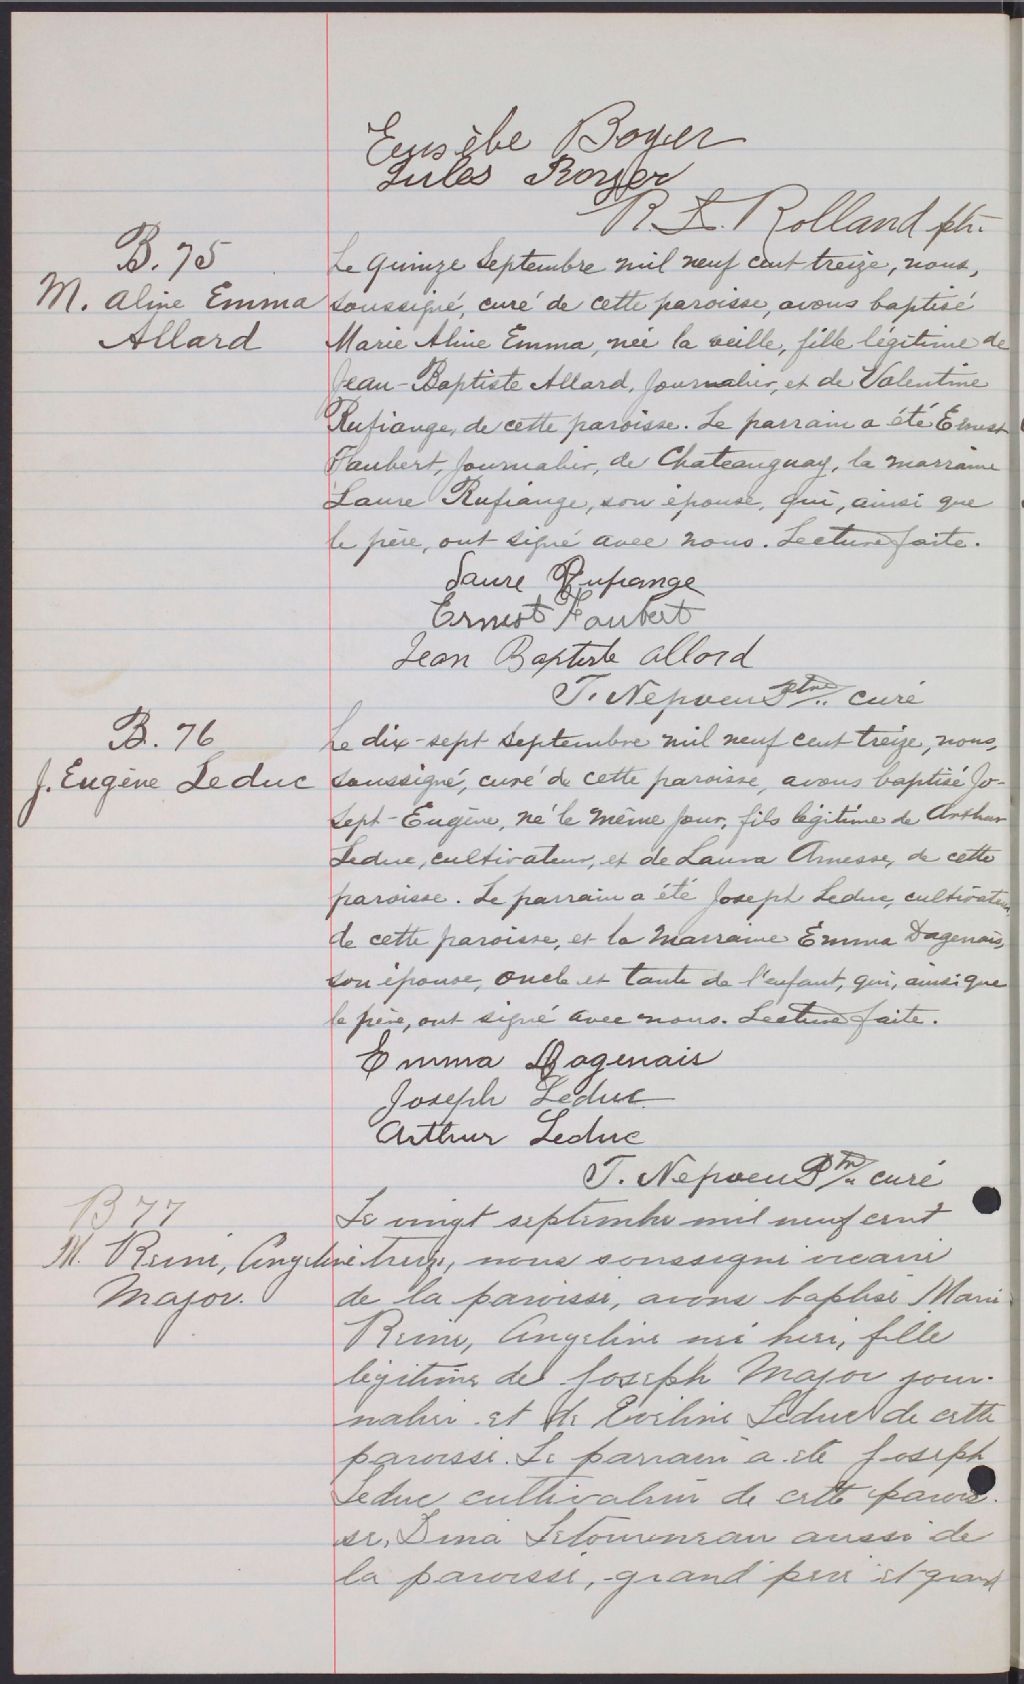 Eusèbe Boyer
Jules Boyer
R. L. Rolland ptr.
B. 75
M. Aline Emma
Allard
Le quinze Septembre mil neuf cent treize, nous,
soussigné, curé de cette paroisse, avons baptisé
Marie Aline Emma, née la veille, fille légitime de
Jean-Baptiste Allard, journalier, et de Valentine
Rufiange, de cette paroisse. Le parrain a été Ernest
Faubert, journalier, de Chateauguay, la marraine
Laure Rufiange, son épouse, qui, ainsi que
le père, ont signé avec nous. Lecture faite.
Laure Rufiange
Ernest Faubert
Jean Baptiste Allard
T. Nepveu Ptre curé
B. 76
J. Eugène Leduc
Le dix-sept Septembre mil neuf cent treize, nous,
soussigné, curé de cette paroisse, avons baptisé Jo-
seph-Eugène, né le même jour, fils légitime de Arthur
Leduc, cultivateur, et de Laura Amesse, de cette
paroisse. Le parrain a été Joseph Leduc, cultivateur
de cette paroisse, et la marraine Emma Dagenais,
son épouse, oncle et tante de l'enfant, qui, ainsi que
le père, ont signé avec nous. Lecture faite.
Emma Dagenais
Joseph Leduc
Arthur Leduc
T. Nepveu Ptr curé
B 77
M. Reine, Angeline
Major.
Le vingt septembre mil neuf cent
treize, nous soussigné vicaire
de la paroisse, avons baptisé Marie
Reine, Angeline née hier, fille
légitime de Joseph Major jour-
nalier et de Eveline Leduc de cette
paroisse. Le parrain a été Joseph
Leduc cultivateur de cette parois-
se, Dina Letourneau aussi de
la paroisse, grand père et grand